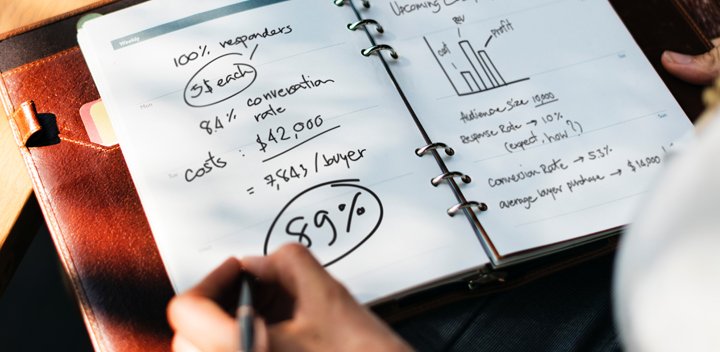 Weekly
100% responders
5$ each
84% conversation
rate
costs : $42,000
= 7,843/buyer
89%
Upcoming
rev
cost
profit
Audience size 10,000
Response Rate → 10%
(expect, how?)
Conversion Rate → 53%
average buyer purchase → $14,000